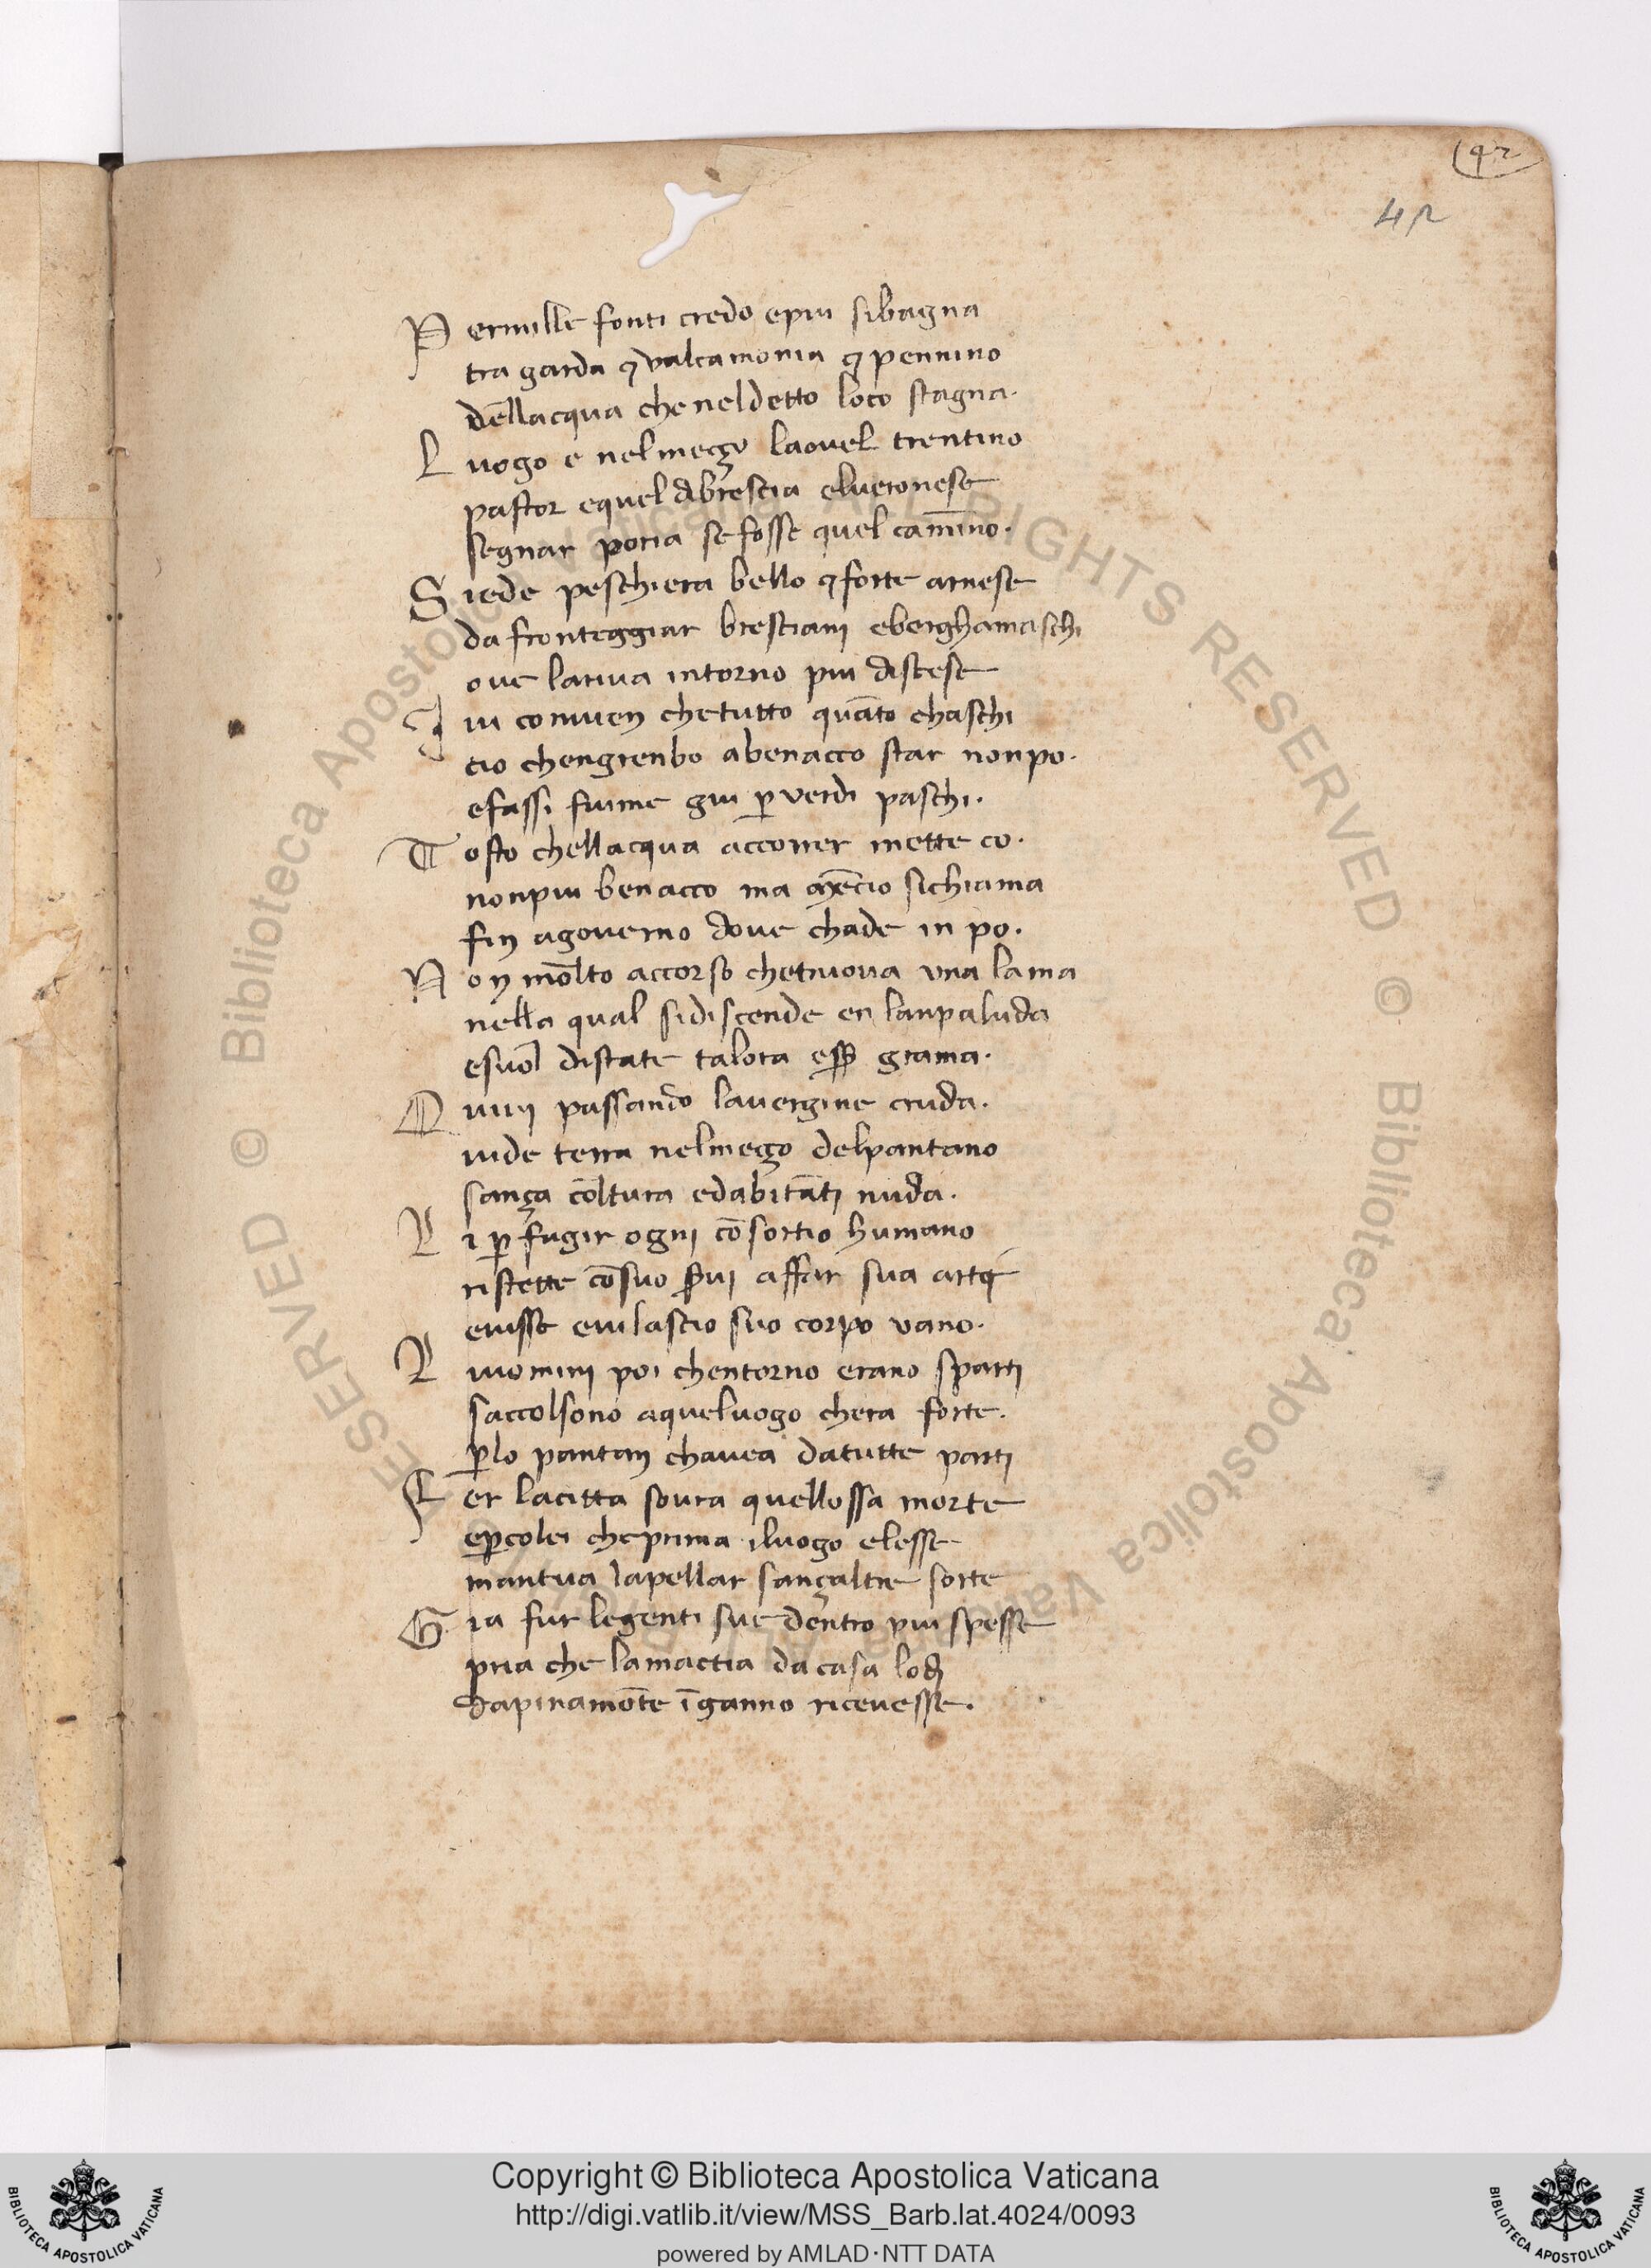 42
42
Permille fonti credo epiu sibagna
tra garda ⁊ valcamonia ⁊ pennino
dellacqua che neldetto loco stagna.
Luogo e nel meçço laovel trentino
pastor equel dibrescia elveronese
segnar poria se fosse quel cam̅ino.
Siede peschiera bello ⁊ forte arnese
da fronteggiar bresciani eberghamaschi
ove lariva intorno piu discese
Ivi convien chetutto qua̅to chaschi
cio chengrenbo abenacco star nonpo.
efassi fiume giu ꝑ verdi paschi.
Tosto chellacqua accorrer mette co.
nonpiu benacco ma me̅cio sichiama
fin agoverno dove chade in po.
Non molto accorso chetruova una lama
nella qual sidiscende en lanpaluda
esuol distate talora eſſ̅ grama.
Quivi passando lavergine cruda.
vide terra nelmeço delpantano
sança coltura edabita̅ti nuda.
Li ꝑ fugir ogni co̅sortio humano
ristette co̅suo s̅vi affar sua arte
evisse evilascio suo corpo vano.
Li uomini poi chentorno erano sparti
saccolsono aqueluogo chera forte.
ꝑlo pantan chavea datutte parti
Fer lacitta sovra quellossa morte
eꝑcolei cheprima iluogo elesse
mantua lapellar sançaltre sorte
Gia fur legenti sue dentro piu spesse
pria che lamactia da casa lodi
dapinamo̅te i̅ganno ricevesse.
Copyright © Biblioteca Apostolica Vaticana
http://digi.vatlib.it/view/MSS_Barb.lat.4024/0093
powered by AMLAD·NTT DATA
BIBLIOTECA APOSTOLICA VATICANA
BIBLIOTECA APOSTOLICA VATICANA